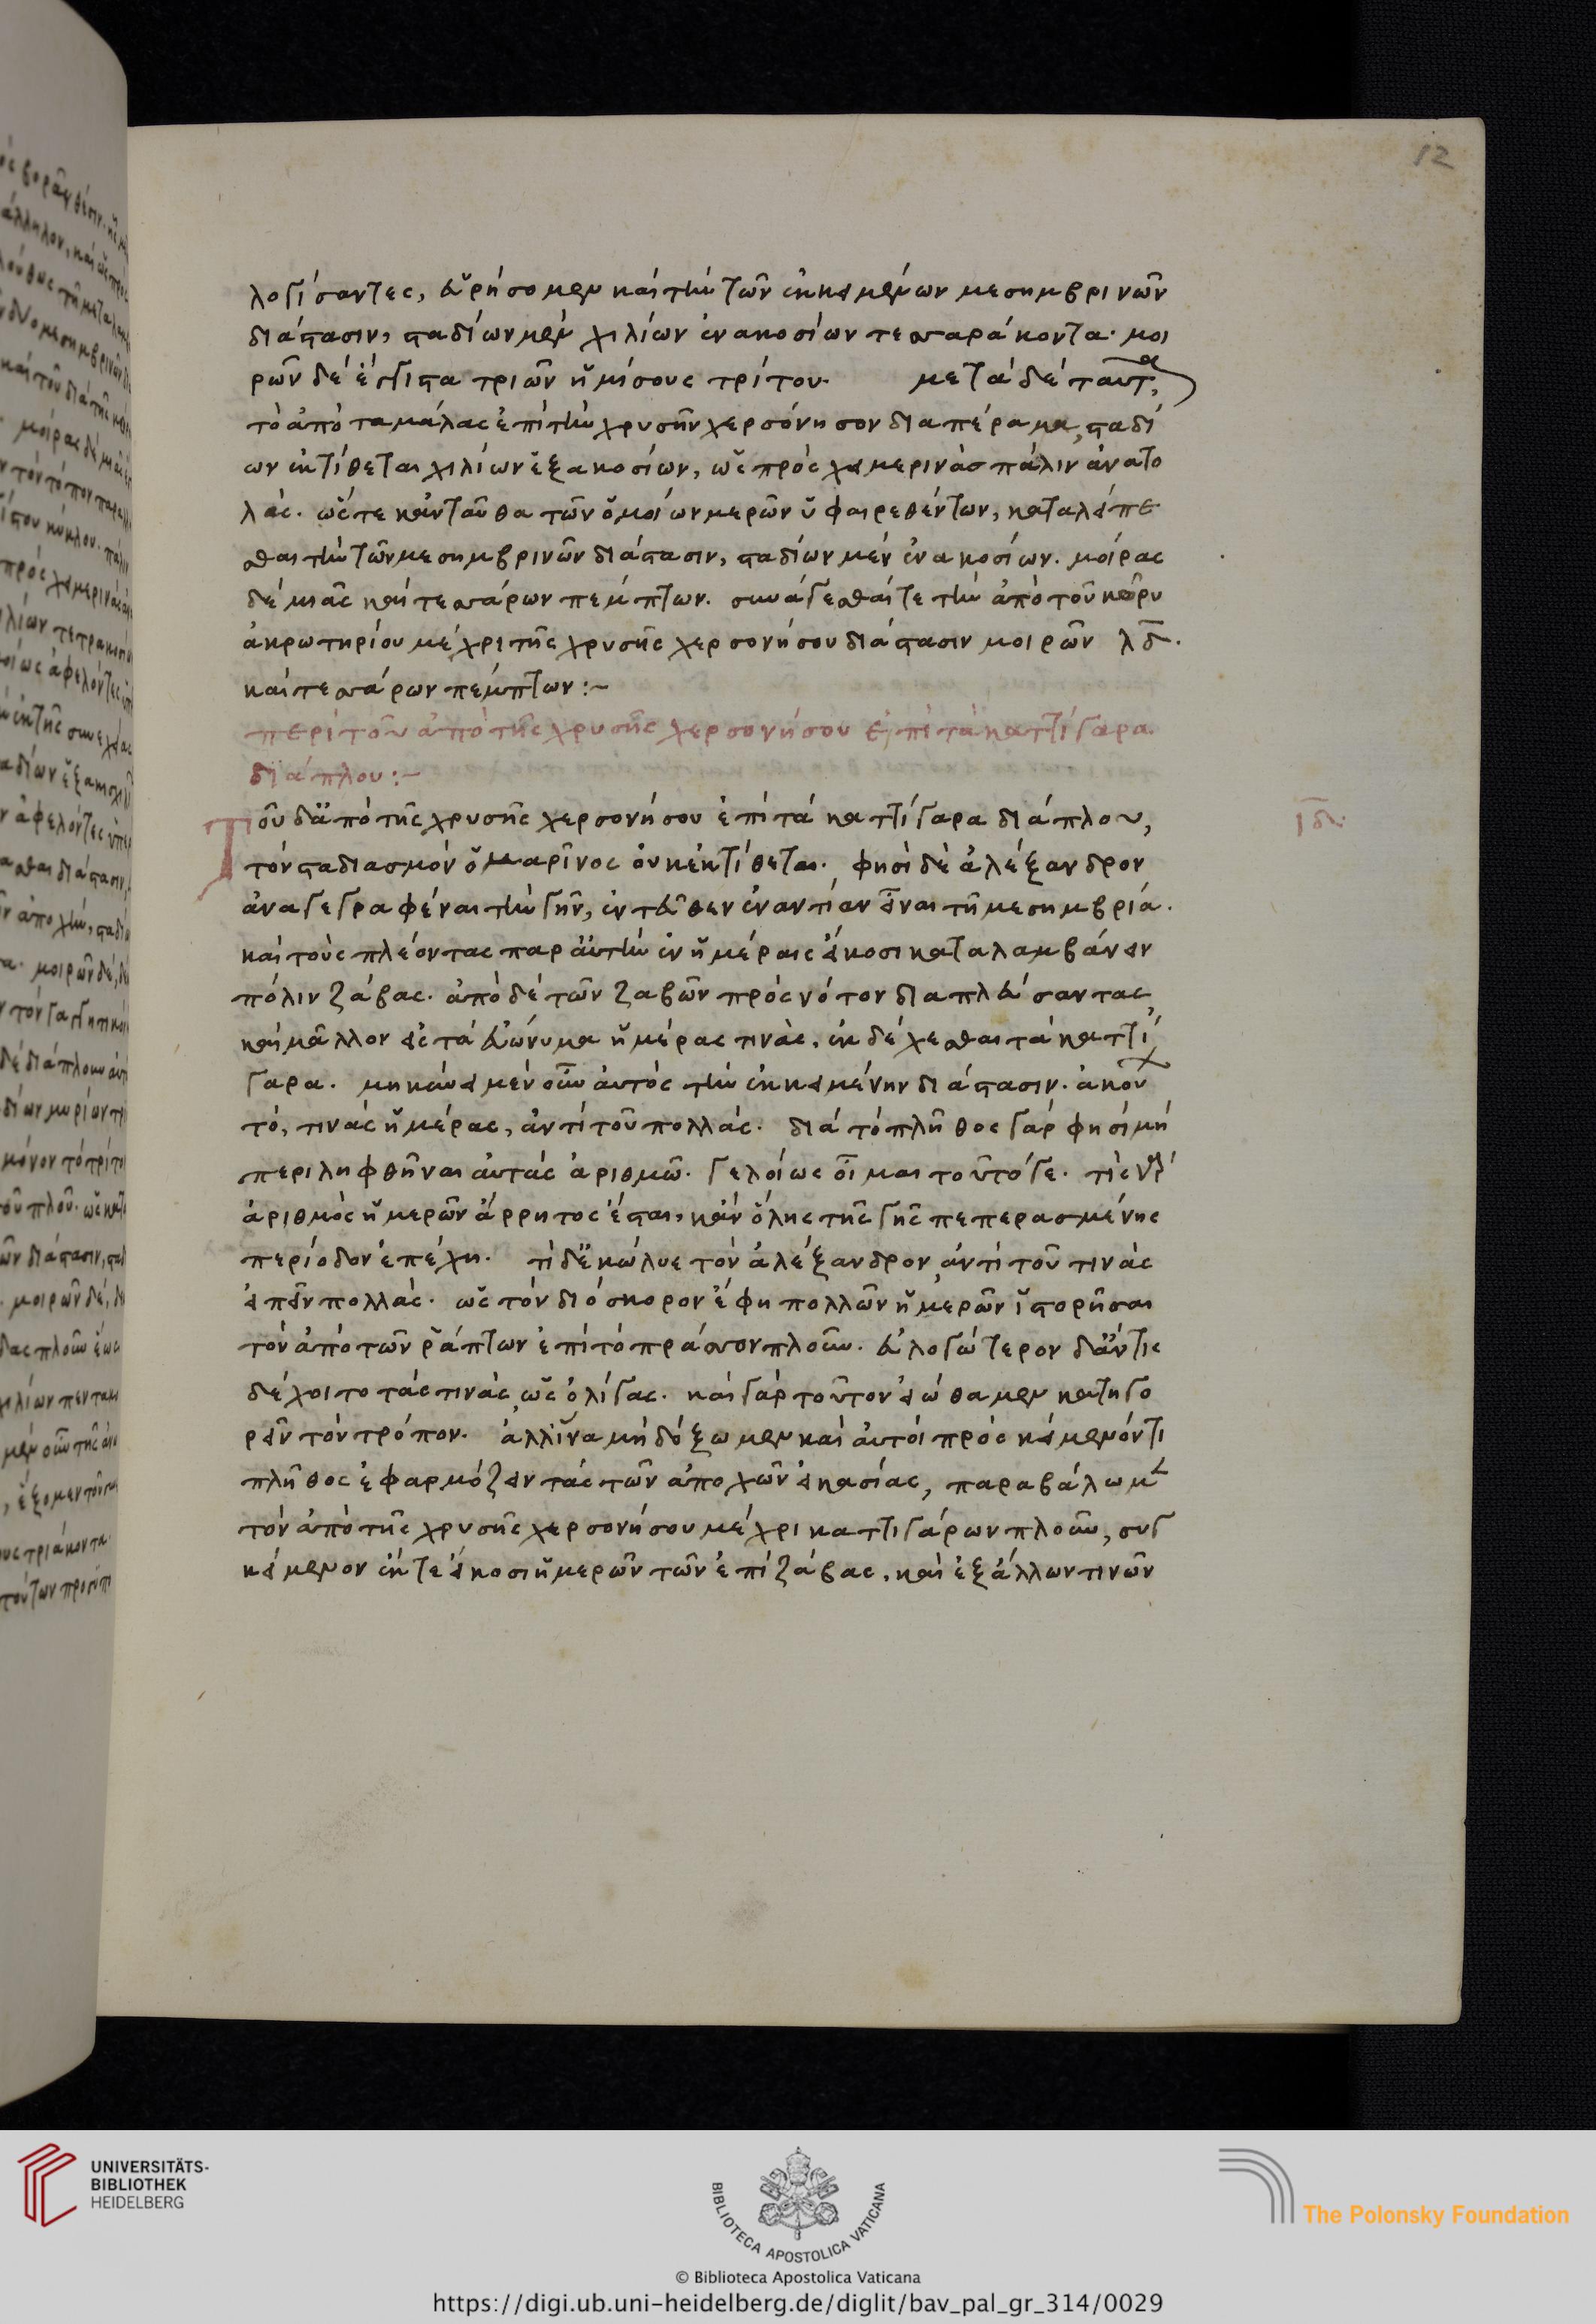 12
λογίσαντες, εὑρήσομεν καὶ τὴν τῶν ἐκκειμένων μεσημβρινῶν
διάστασιν, σταδίων μὲν χιλίων ἐνακοσίων τεσσαράκοντα· μοι
ρῶν δὲ ἔγγιστα τριῶν ἡμίσους τρίτου. μετὰ δὲ ταῦτα,
τὸ ἀπὸ ταμάλας ἐπὶ τὴν χρυσῆν χερσόνησον διαπέραμα, σταδί
ων ἐκτίθεται χιλίων ἑξακοσίων, ὡς πρὸς χειμερινὰς πάλιν ἀνατο
λάς. ὥστε κἀνταῦθα τῶν ὁμοίων μερῶν ὑφαιρεθέντων, καταλείπε
σθαι τὴν τῶν μεσημβρινῶν διάστασιν, σταδίων μὲν ἐνακοσίων. μοίρας
δὲ μιᾶς καὶ τεσσάρων πέμπτων. συνάγεσθαί τε τὴν ἀπὸ τοῦ κώρυ
ἀκρωτηρίου μέχρι τῆς χρυσῆς χερσονήσου διάστασιν μοιρῶν λδ.
καὶ τεσσάρων πέμπτων :~
περὶ τοῦ ἀπὸ τῆς χρυσῆς χερσονήσου ἐπὶ τὰ καττίγαρα
διάπλου :~
Τοῦ δ' ἀπὸ τῆς χρυσῆς χερσονήσου ἐπὶ τὰ καττίγαρα διάπλου,
ιδ.
τὸν σταδιασμὸν ὁ μαρῖνος οὐκ ἐκτίθεται. φησὶ δὲ ἀλέξανδρον
ἀναγεγραφέναι τὴν γῆν, ἐντεῦθεν ἐναντίαν εἶναι τῇ μεσημβρία.
καὶ τοὺς πλέοντας παρ' αὐτὴν ἐν ἡμέραις εἴκοσι καταλαμβάνειν
πόλιν ζάβας. ἀπὸ δὲ τῶν ζαβῶν πρὸς νότον διαπλεύσαντας,
καὶ μᾶλλον εἰς τὰ εὐώνυμα ἡμέρας τινὰς, ἐκδέχεσθαι τὰ καττί
γαρα. μηκύνει μὲν οὖν αὐτὸς τὴν ἐκκειμένην διάστασιν. ἀκούων
τὸ, τινὰς ἡμέρας, ἀντὶ τοῦ πολλάς. διὰ τὸ πλῆθος γάρ φησι μὴ
περιληφθῆναι αὐτὰς ἀριθμῷ. γελοίως οἶμαι τοῦτό γε. τίς γὰρ
ἀριθμὸς ἡμερῶν ἄρρητος ἔσται, κἂν ὅλης τῆς γῆς πεπερασμένης
περίοδον ἐπέχῃ. τί δ' ἐκώλυε τὸν ἀλέξανδρον, ἀντὶ τοῦ τινὰς
εἰπεῖν πολλάς. ὡς τὸν διόσκορον ἔφη πολλῶν ἡμερῶν ἱστορῆσαι
τὸν ἀπὸ τῶν ῥάπτων ἐπὶ τὸ πράσσον πλοῦν. εὐλογώτερον δ' ἄν τις
δέχοιτο τὰς τινὰς, ὡς ὀλίγας. καὶ γὰρ τοῦτον εἰώθαμεν κατηγο
ρεῖν τὸν τρόπον. ἀλλ' ἵνα μὴ δόξωμεν καὶ αὐτοὶ πρὸς κείμενόν τι
πλῆθος ἐφαρμόζειν τὰς τῶν ἀποχῶν εἰκασίας, παραβάλωμεν
τὸν ἀπὸ τῆς χρυσῆς χερσονήσου μέχρι καττιγάρων πλοῦν, συγ
κείμενον ἔκ τε εἴκοσι ἡμερῶν τῶν ἐπὶ ζάβας, καὶ ἐξ ἄλλων τινῶν
UNIVERSITÄTS-
BIBLIOTHEK
HEIDELBERG
BIBLIOTECA APOSTOLICA VATICANA
The Polonsky Foundation
© Biblioteca Apostolica Vaticana
https://digi.ub.uni-heidelberg.de/diglit/bav_pal_gr_314/0029